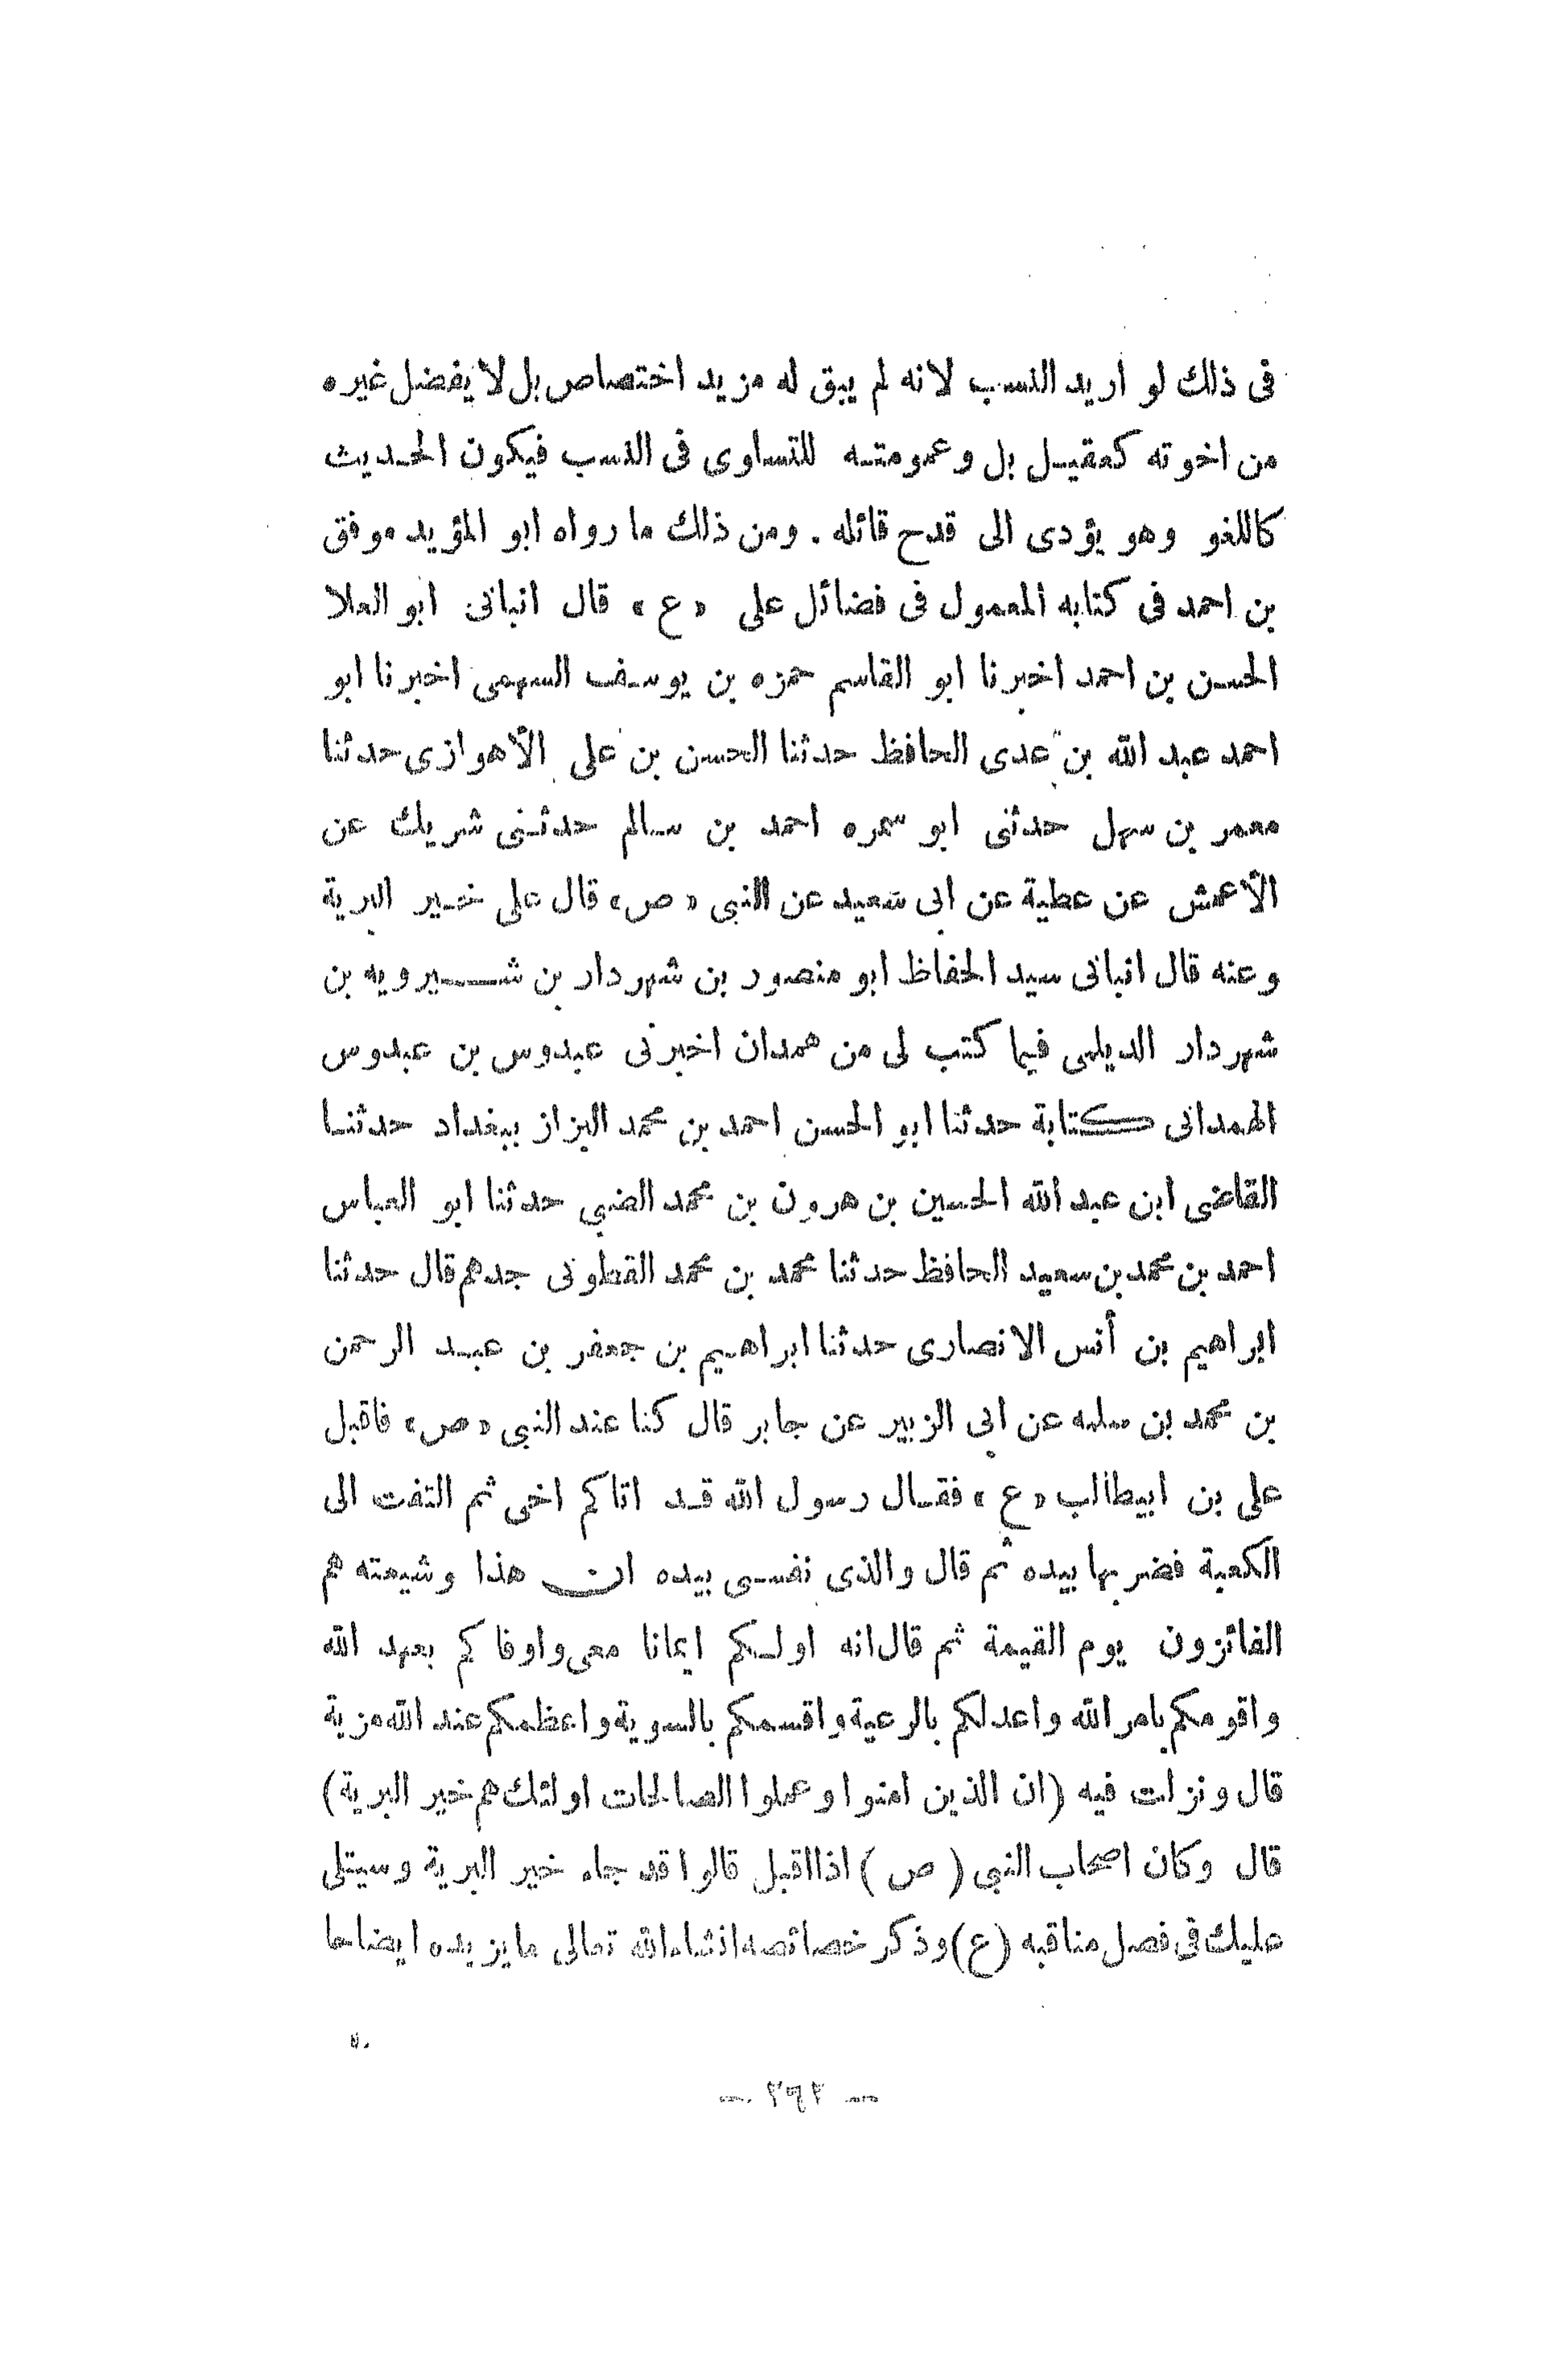 فى ذلك لو اريد النسب لانه لم يبق له مزيد اختصاص بل لا يفضل غيره
من اخوته كعقيل بل وعمومته للتساوى فى النسب فيكون الحديث
كاللغو وهو يؤدى الى قدح قائله . ومن ذلك ما رواه ابو المؤيد موفق
بن احمد فى كتابه المعمول فى فضائل على « ع » قال انبانى ابو العلا
الحسن بن احمد اخبرنا ابو القاسم حمزه بن يوسف السهمى اخبرنا ابو
احمد عبد الله بن عدى الحافظ حدثنا الحسن بن على الأهوازى حدثنا
معمر بن سهل حدثنى ابو سمره احمد بن سالم حدثنى شريك عن
الأعمش عن عطية عن ابى سعيد عن النبى « ص » قال على خير البرية
وعنه قال انبانى سيد الحفاظ ابو منصور بن شهردار بن شيرويه بن
شهردار الديلمى فيما كتب لى من همدان اخبرنى عبدوس بن عبدوس
الهمدانى كتابة حدثنا ابو الحسن احمد بن محمد البزاز ببغداد حدثنا
القاضى ابن عبد الله الحسين بن هرون بن محمد الضبي حدثنا ابو العباس
احمد بن محمد بن سعيد الحافظ حدثنا محمد بن محمد القطونى جدهم قال حدثنا
ابراهيم بن أنس الانصارى حدثنا ابراهيم بن جعفر بن عبد الرحمن
بن محمد بن سلمه عن ابى الزبير عن جابر قال كنا عند النبى « ص » فاقبل
على بن ابيطالب « ع » فقال رسول الله قد اتاكم اخى ثم التفت الى
الكعبة فضربها بيده ثم قال والذى نفسى بيده ان هذا وشيعته هم
الفائزون يوم القيمة ثم قال انه اولكم ايمانا معى واوفاكم بعهد الله
واقومكم بامر الله واعدلكم بالرعية واقسمكم بالسوية واعظمكم عند الله مزية
قال ونزلت فيه (ان الذين امنوا وعملوا الصالحات اولئك هم خير البرية)
قال وكان اصحاب النبي ( ص ) اذا اقبل قالوا قد جاء خير البرية وسيتلى
عليك فى فصل مناقبه (ع) وذكر خصائصه انشاء الله تعالى ما يزيده ايضاحا
— ٢٩٢ —